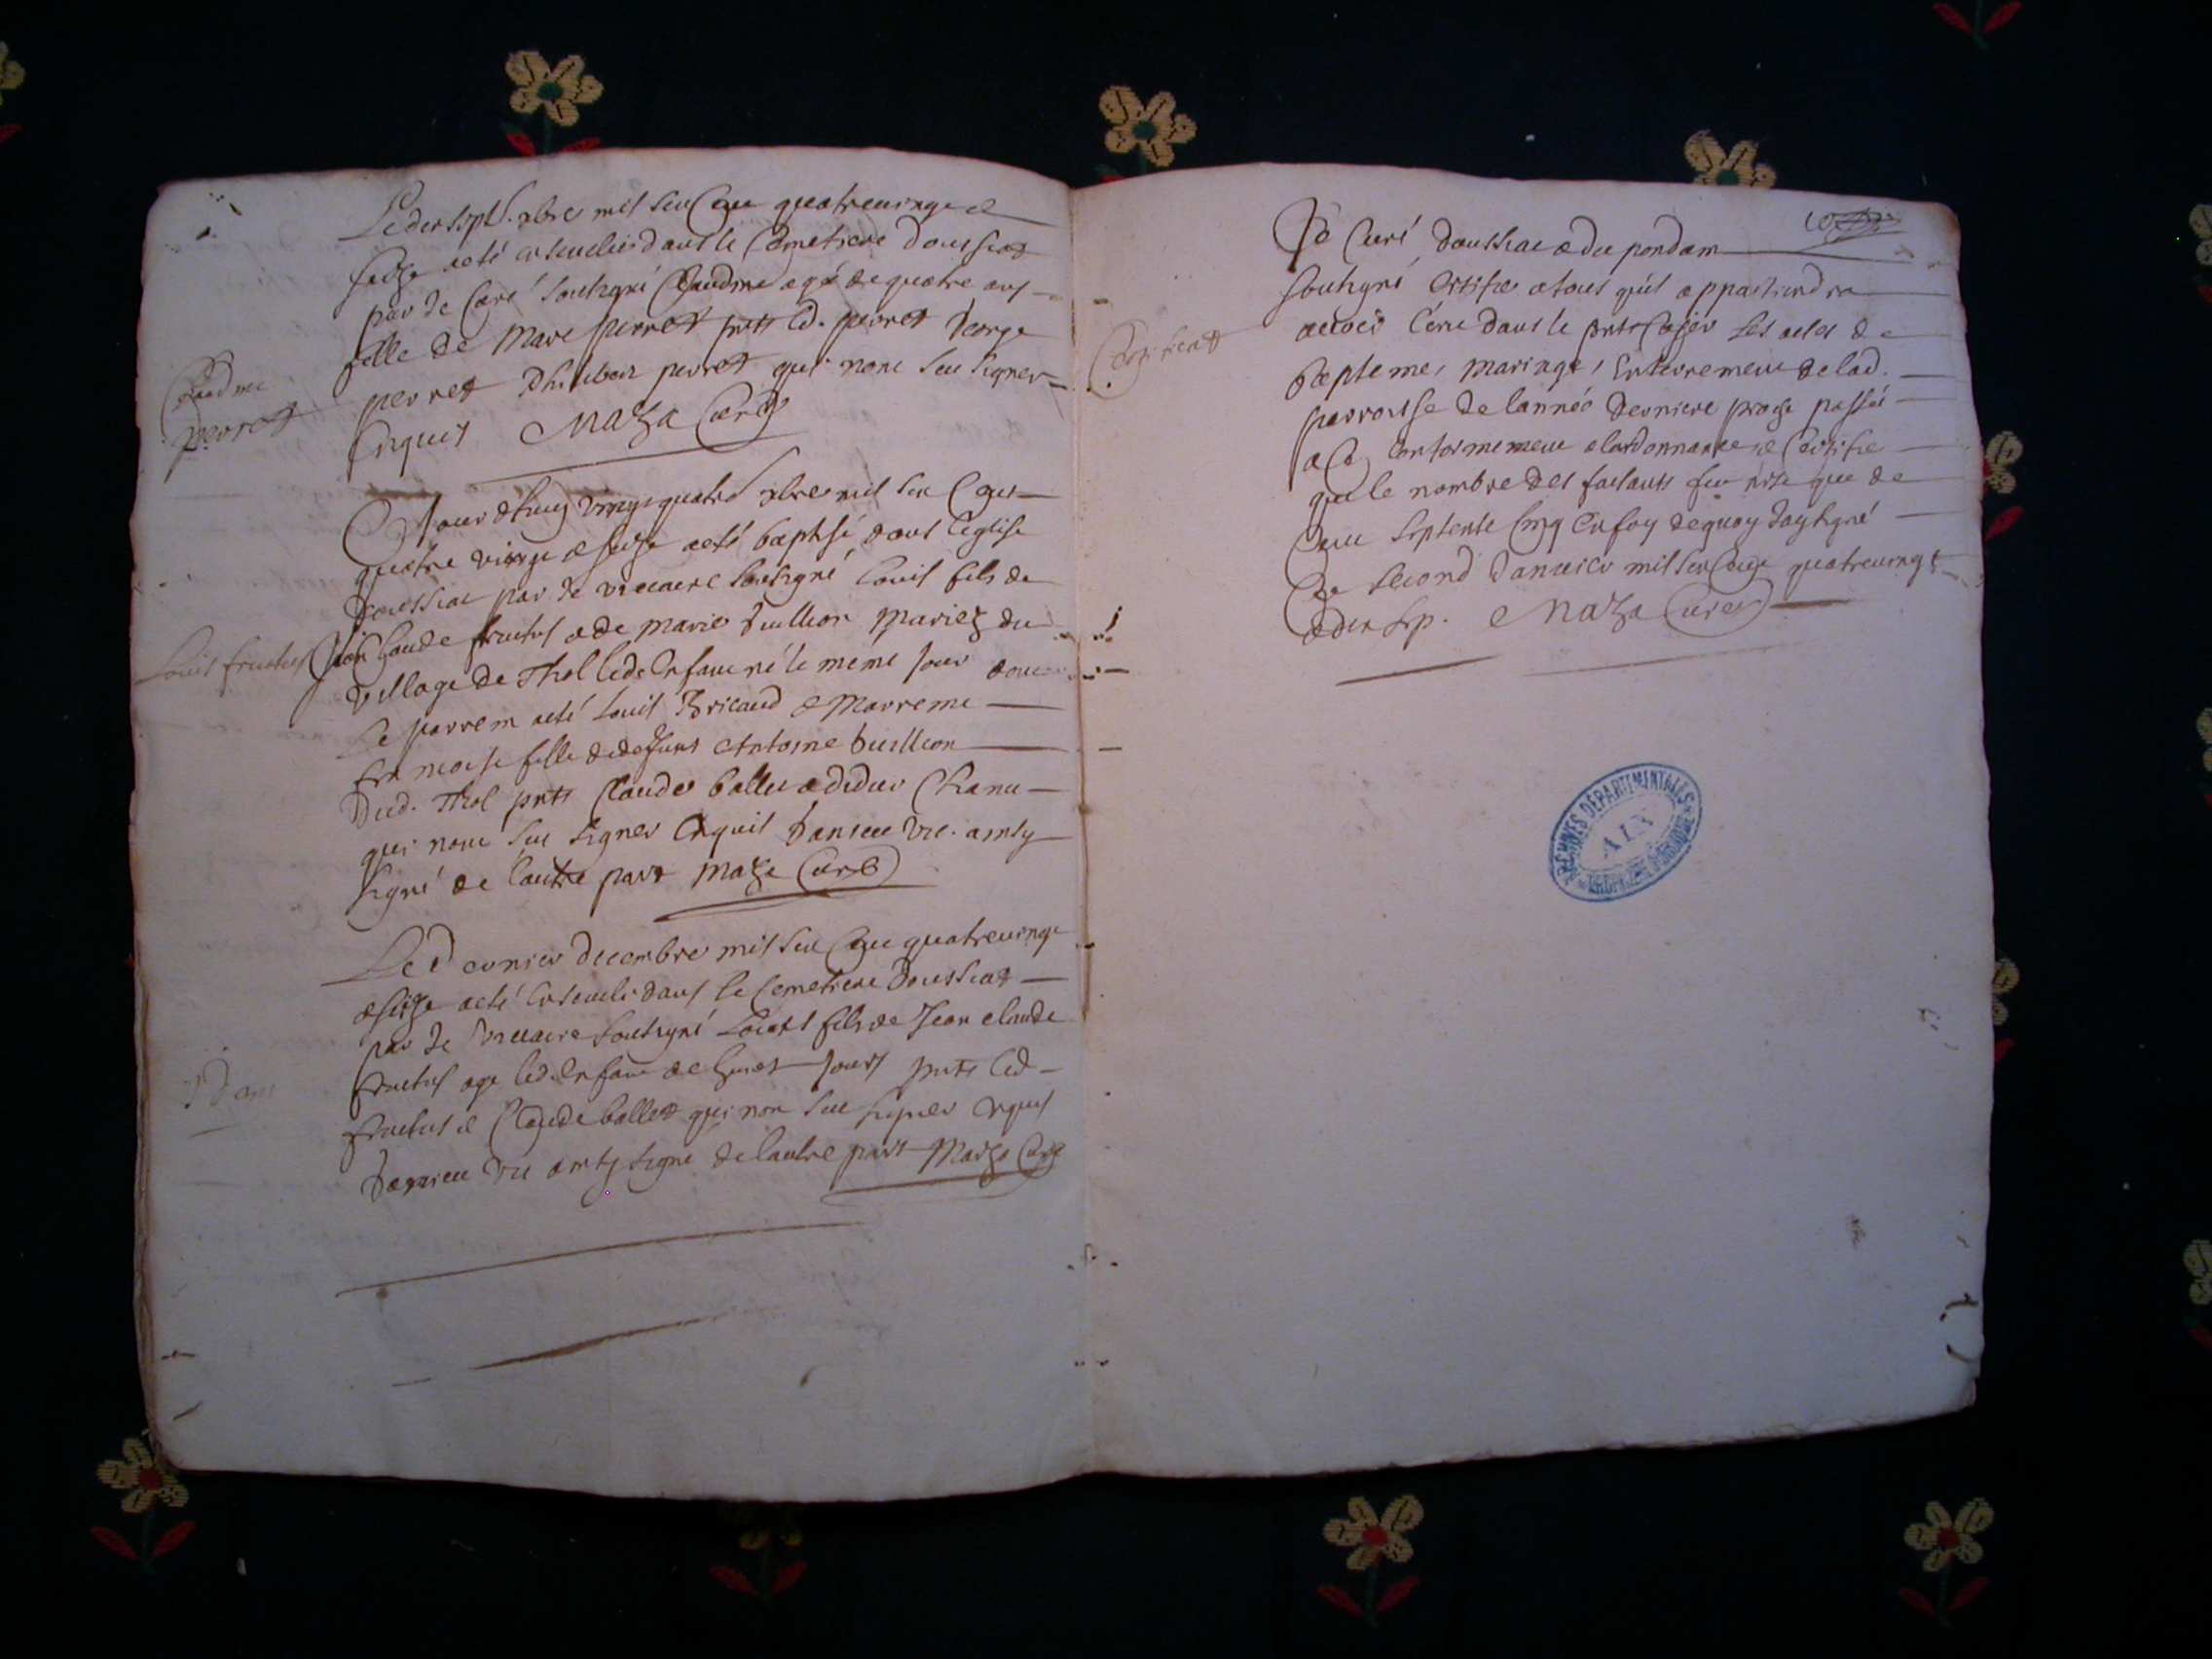 Le dix sept xbre mil six Cen quatreuingt e
seize a eté enseuelie dans le Cemetiere doussiat
par Je Curé soubsigné Claudine agé de quatre ans
fille de Marc perret pnts led. perret George
perret Philibert perret qui nont seu signer
Enquis Maza Curé
Claudine
perret
Jourdhuy vingt quatre xbre mil six Cens
quatre vingt e seize a eté baptisé dans l'eglise
doussiat par Je vicaire soubsigné Louis fils de
Jean Claude fructus e de marie vuillion mariez du
Louis fructus
village de Thol led. Enfant né le même Jour
Le parrein a eté Louis Bricaud e Marreine
francoise fille de deffunt Antoine vuillion
Dud. Thol pnts Claude ballet e didier Chanu
qui nont seu signer Enquis vic. ainsy
signé de l'autre part Maza Curé
Le Dernier decembre mil six Cen quatreuingt
e seize a eté Enseueli dans le Cemetiere Doussiat
par Je vicaire soubsigné Louis fils de Jean claude
fructus age led. Enfant de huict Jours pnts led
fructus e Claude ballet qui non seu signer Enquis
vic ainsy signé de l'autre part Maza Curé
Je Curé doussiat e du pondain
soubsigné Certifie a tous qu'il appartiendra
auoir Ecrit dans le pnt Cayer Les actes de
Baptemes mariages Enterrement de lad.
parroisse de lannée derniere proche passée
e Ce Conformement a lordonnance e Certifie
que le nombre des feuilants que de
Cent septente Cinq En foy de quoy Jay signé
Ce second Januier mil six Cent quatreuingt
e dix sep. Maza Curé
Certificat
ARCHIVES DÉPARTEMENTALES
AIN